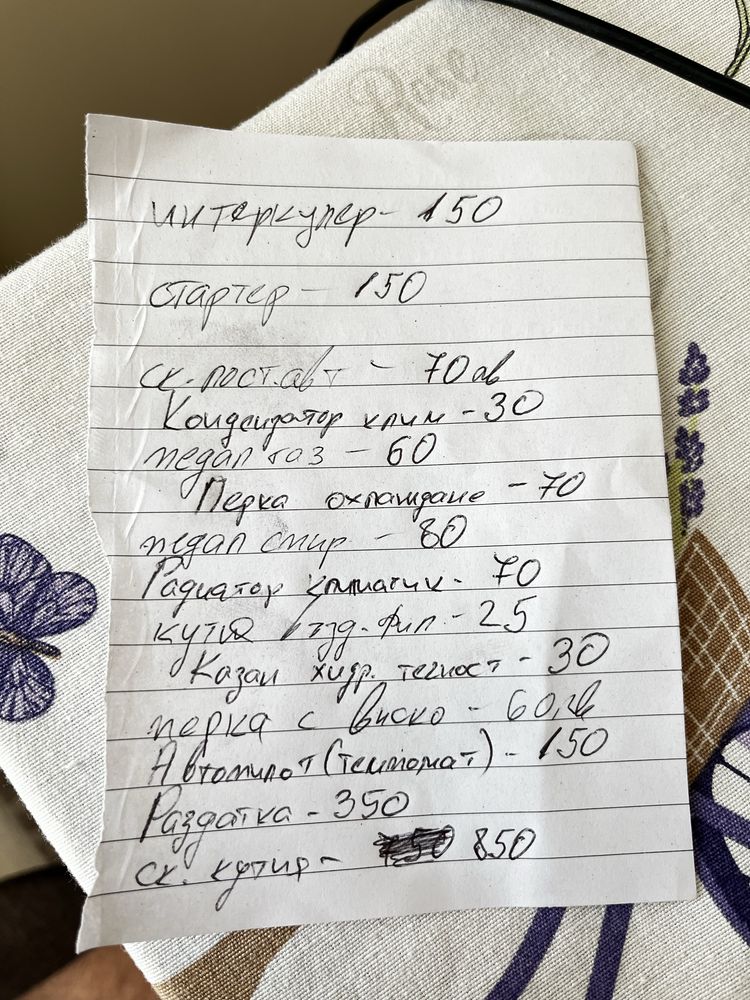 Rose
интеркулер - 150
стартер - 150
ск. пост. авт - 70 лв
Кондензатор клим - 30
педал газ - 60
Перка охлаждане - 70
педал спир - 80
Радиатор климатик - 70
кутия взд. фил - 25
Казан хидр. течност - 30
перка с виско - 60 лв
Автопилот (темпомат) - 150
Раздатка - 350
ск. кутия - 850